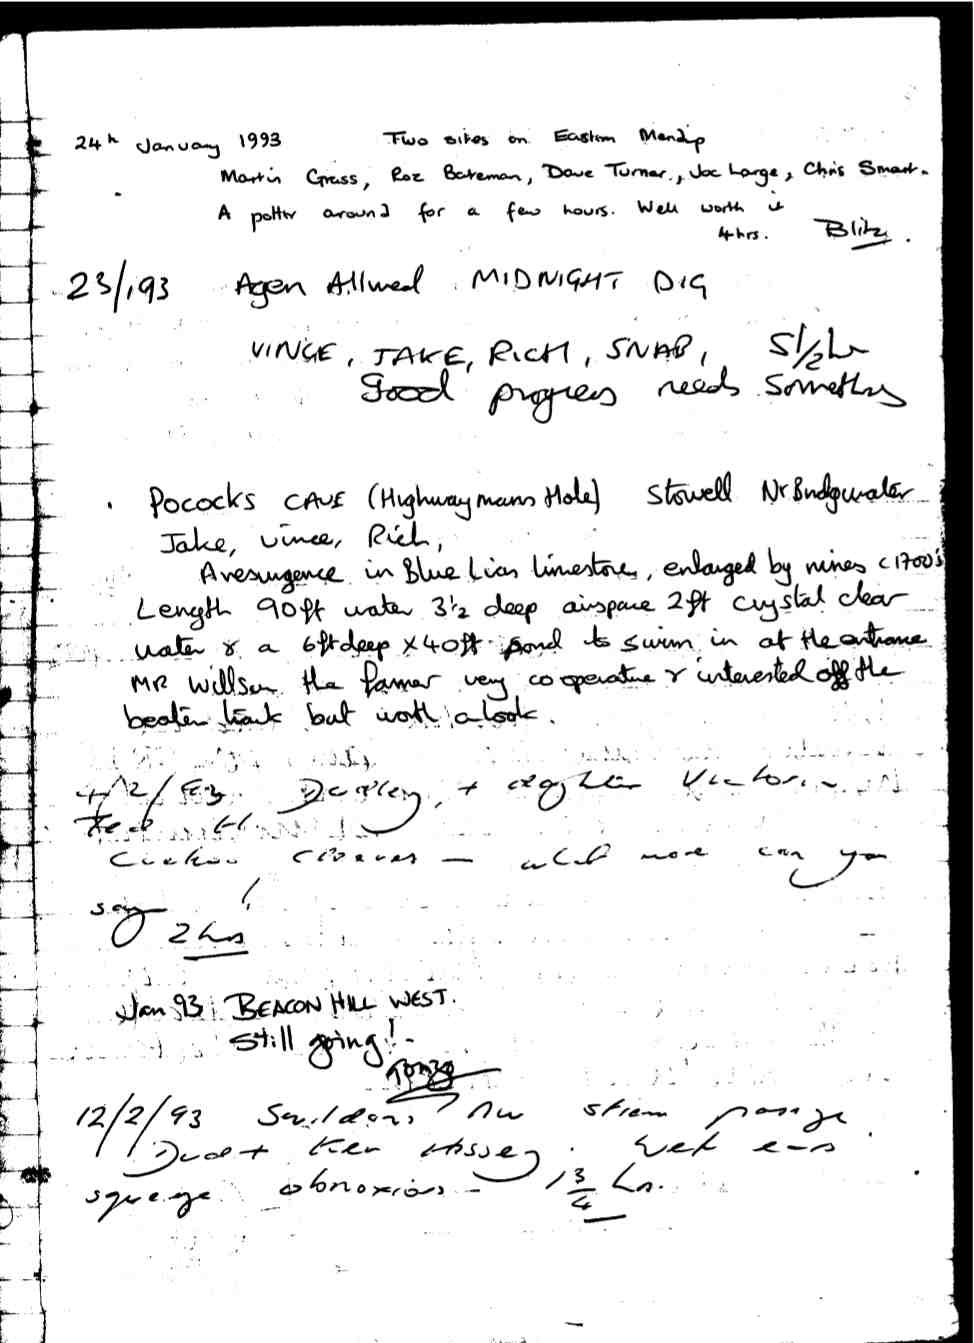 24th January 1993 Two sites on Eastern Mendip
Martin Grass, Roz Bateman, Dave Turner, Joc Large, Chris Smart.
A potter around for a few hours. Well worth it
4hrs. Blitz.
23/1/93 Agen Allwed MIDNIGHT DIG
VINCE, JAKE, RICH, SNAB, 5 1/2 hr
Good progress needs something
Pococks CAVE (Highwaymans Hole) Stowell Nr Bridgwater
Jake, Vince, Rich,
A resurgence in Blue Lias limestone, enlarged by mines c1700's
Length 90ft water 3½ deep airspace 2ft crystal clear
water & a 6ft deep x 40ft pond to swim in at the entrance
MR Willsen the farmer very cooperative & interested off the
beaten track but worth a look.
4/2/93 + Victoria
what more can you
say !
2 hrs
Jan 93: BEACON HILL WEST.
Still going!
Tonze
12/2/93 Swildons NW stream passage
+ Ken Hussey. Wet ears
squeeze obnoxious - 1 3/4 hr.